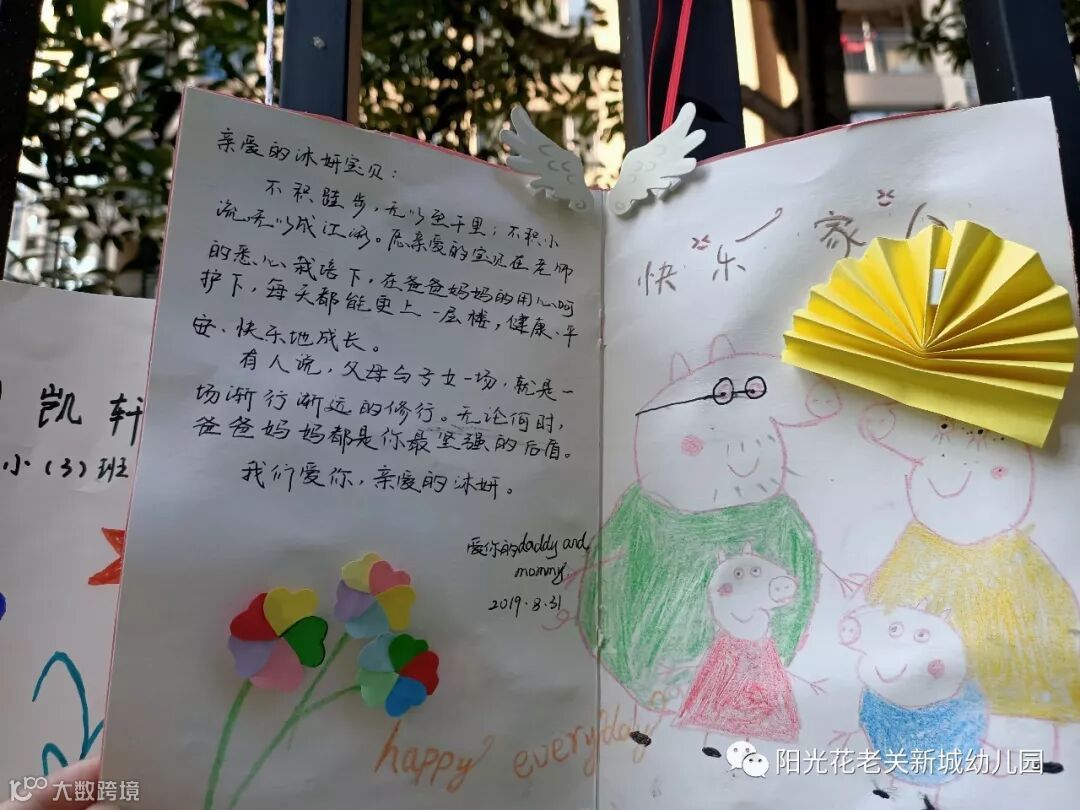 亲爱的沐妍宝贝：
不积跬步，无以至千里；不积小
流无以成江海。愿亲爱的宝贝在老师
的悉心栽培下，在爸爸妈妈的用心呵
护下，每天都能更上一层楼，健康、平
安、快乐地成长。
有人说，父母与子女一场，就是一
场渐行渐远的修行。无论何时，
爸爸妈妈都是你最坚强的后盾。
我们爱你，亲爱的沐妍。
爱你的daddy and
mommy
2019.8.31
happy everyday
快乐一家
凯轩
小（3）班
阳光花老关新城幼儿园
大数跨境